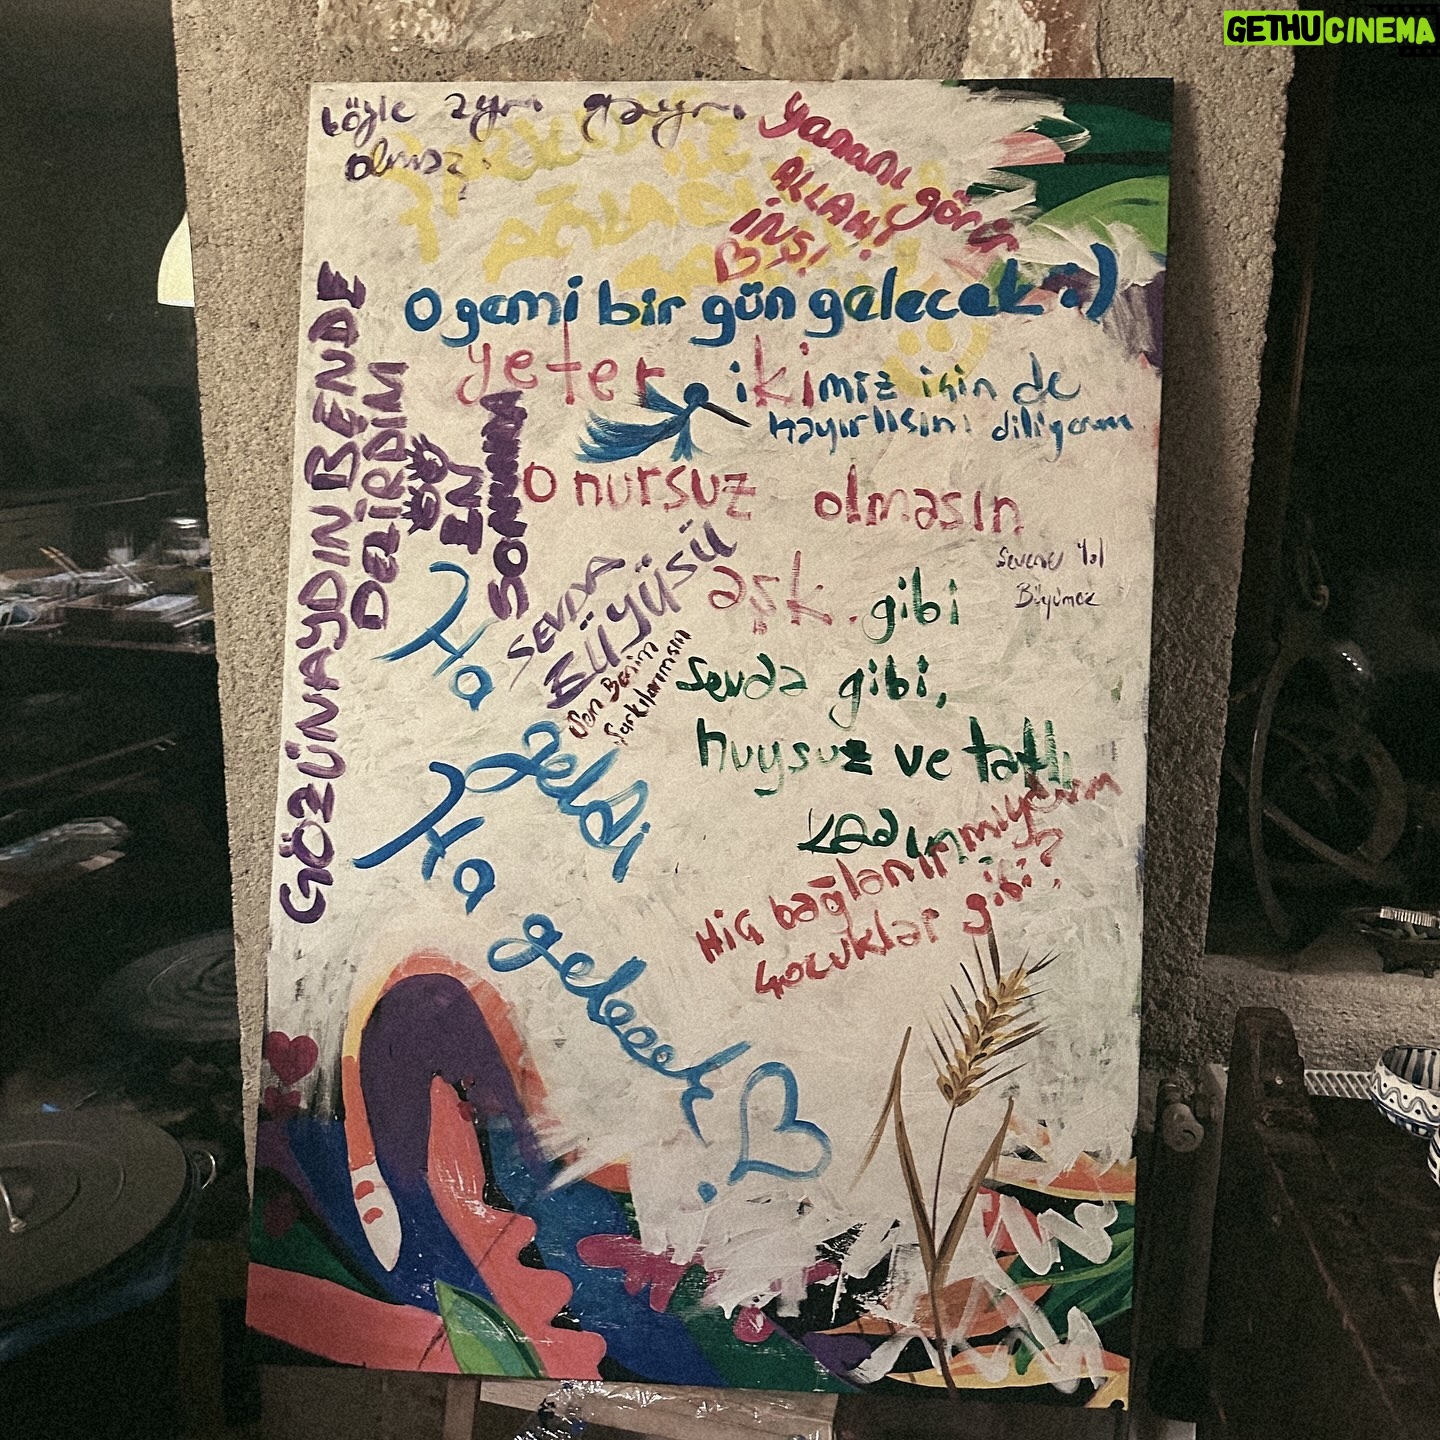 GETHUCINEMA
böyle ayrı gayrı
olmaz.
yarını görür
ALLAH!
İNŞ!
O gemi bir gün gelecek :)
yeter
ikimiz için de
hayırlısını diliyorum
GÖZÜNAYDIN BENDE
DELİRDİM
EN
SONUNDA
onursuz olmasın
aşk. gibi
Sevene Yol
Büyümez
SEVDA
BÜYÜSÜ
Sen Benim
Şarkılarımsın
sevda gibi,
huysuz ve tatlı
kadın
Ha geldi
Ha gelecek
Hiç bağlanır mıyım
çocuklar gibi?